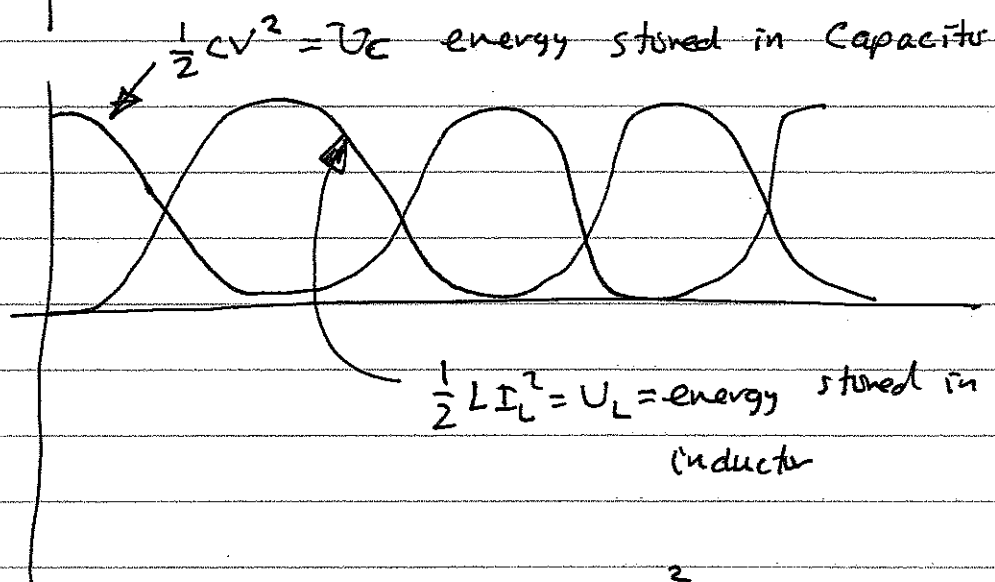 ½CV² = U_C energy stored in Capacitor
½LI_L² = U_L = energy stored in
inductor
2